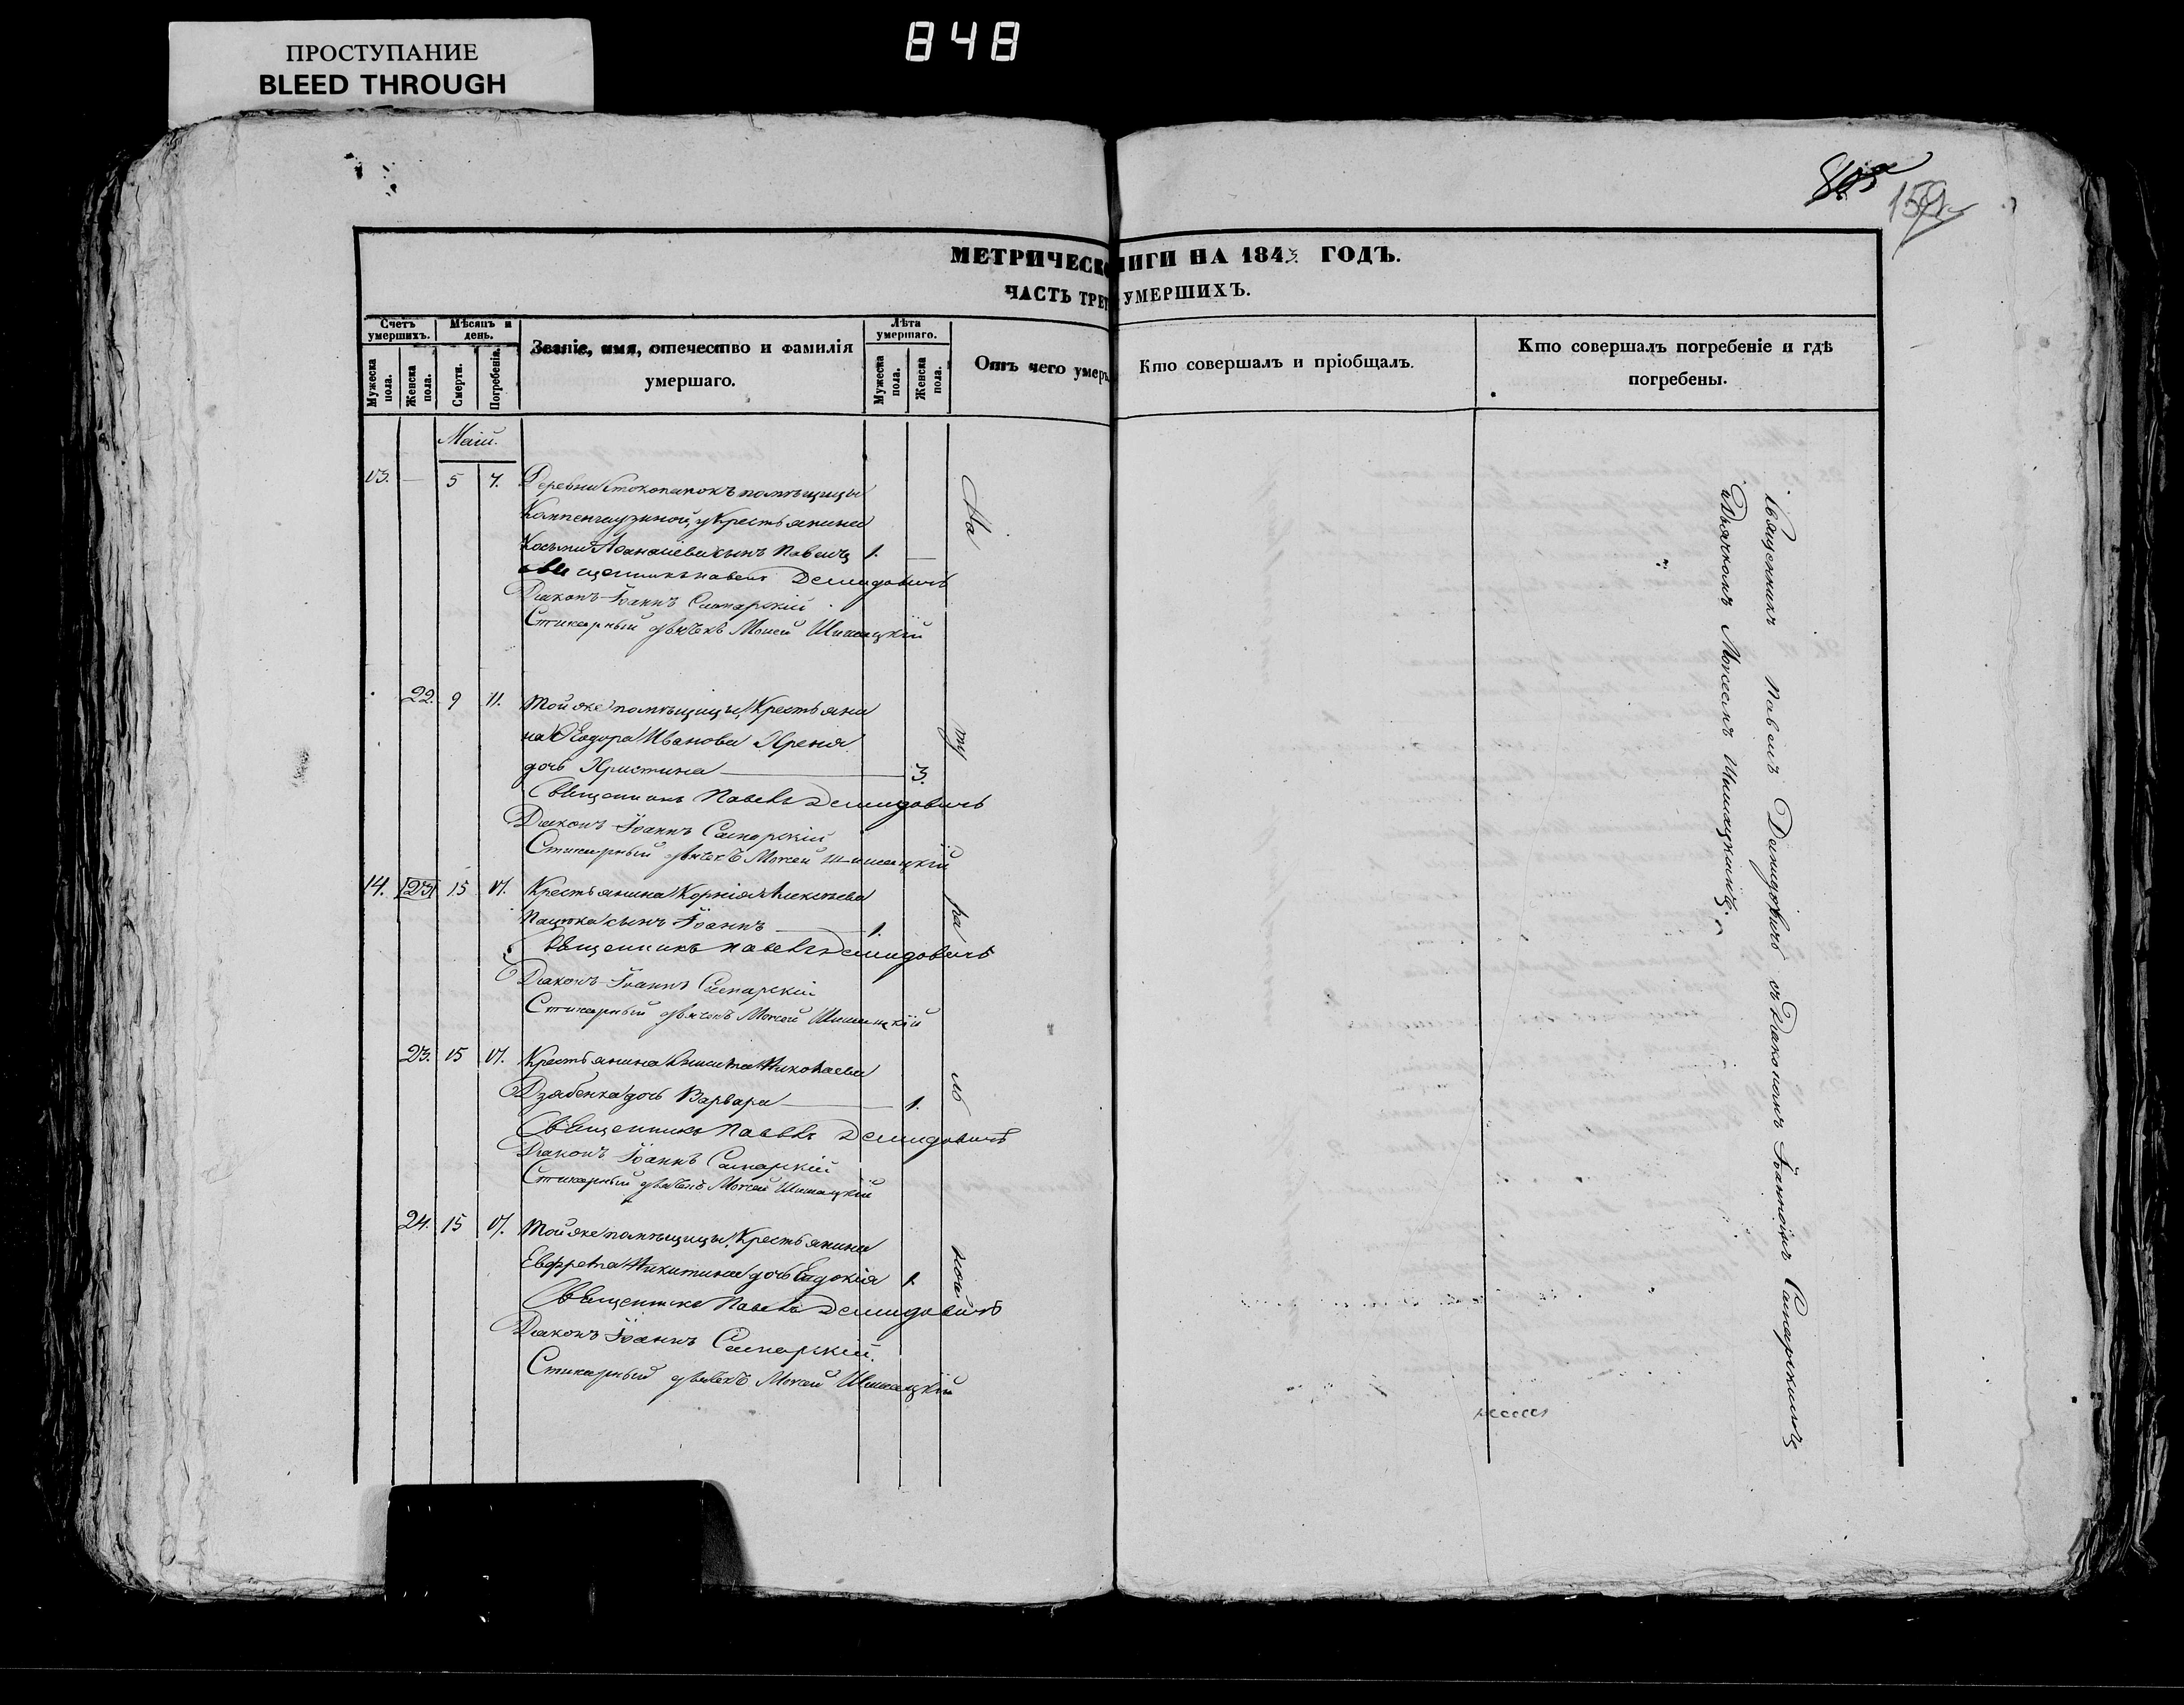 ПРОСТУПАНИЕ
BLEED THROUGH
848
159
МЕТРИЧЕСКО НИГИ НА 1843 ГОДЪ.
ЧАСТЬ ТРЕТ УМЕРШИХЪ.
Счетъ умершихъ.
Мужеска пола.
Женска пола.
Мѣсяцъ и день.
Смерти.
Погребенія.
Званіе, имя, отечество и фамилія умершаго.
Лѣта умершаго.
Мужеска пола.
Женска пола.
Отъ чего умеръ
Кто совершалъ и пріобщалъ.
Кто совершалъ погребеніе и гдѣ погребены.
Маій.
13. — 5 7. Деревни помѣщицы
у Крестьянина
Косьми Аѳанасіева сынъ Павелъ 1. —
Священникъ Павелъ Демидовичъ
Діаконъ Іоаннъ Самарскій
Стихарный дьячекъ Моисей Шишацкій
22. 9 11. Той же помѣщицы, Крестьяни
на Ѳеодора Иванова
дочь Христина — 3.
Священникъ Павелъ Демидовичъ
Діаконъ Іоаннъ Самарскій
Стихарный дьячекъ Моисей Шишацкій
14. 23 15 17. Крестьянина Корнія Алексѣева
Пацюка сынъ Іоаннъ — 1.
Священникъ Павелъ Демидовичъ
Діаконъ Іоаннъ Самарскій
Стихарный дьячекъ Моисей Шишацкій
23. 15 17. Крестьянина Николаева
Дзябенка дочь Варвара — 1.
Священникъ Павелъ Демидовичъ
Діаконъ Іоаннъ Самарскій
Стихарный дьячекъ Моисей Шишацкій
24. 15 17. Той же помѣщицы, Крестьянина
Никитина дочь Евдокія 1.
Священникъ Павелъ Демидовичъ
Діаконъ Іоаннъ Самарскій.
Стихарный дьячекъ Моисей Шишацкій
На ту ра ль ной
Священникъ Павелъ Демидовичъ съ Діакономъ Іоанномъ Самарскимъ
и Дьячкомъ Моисеемъ Шишацкимъ.